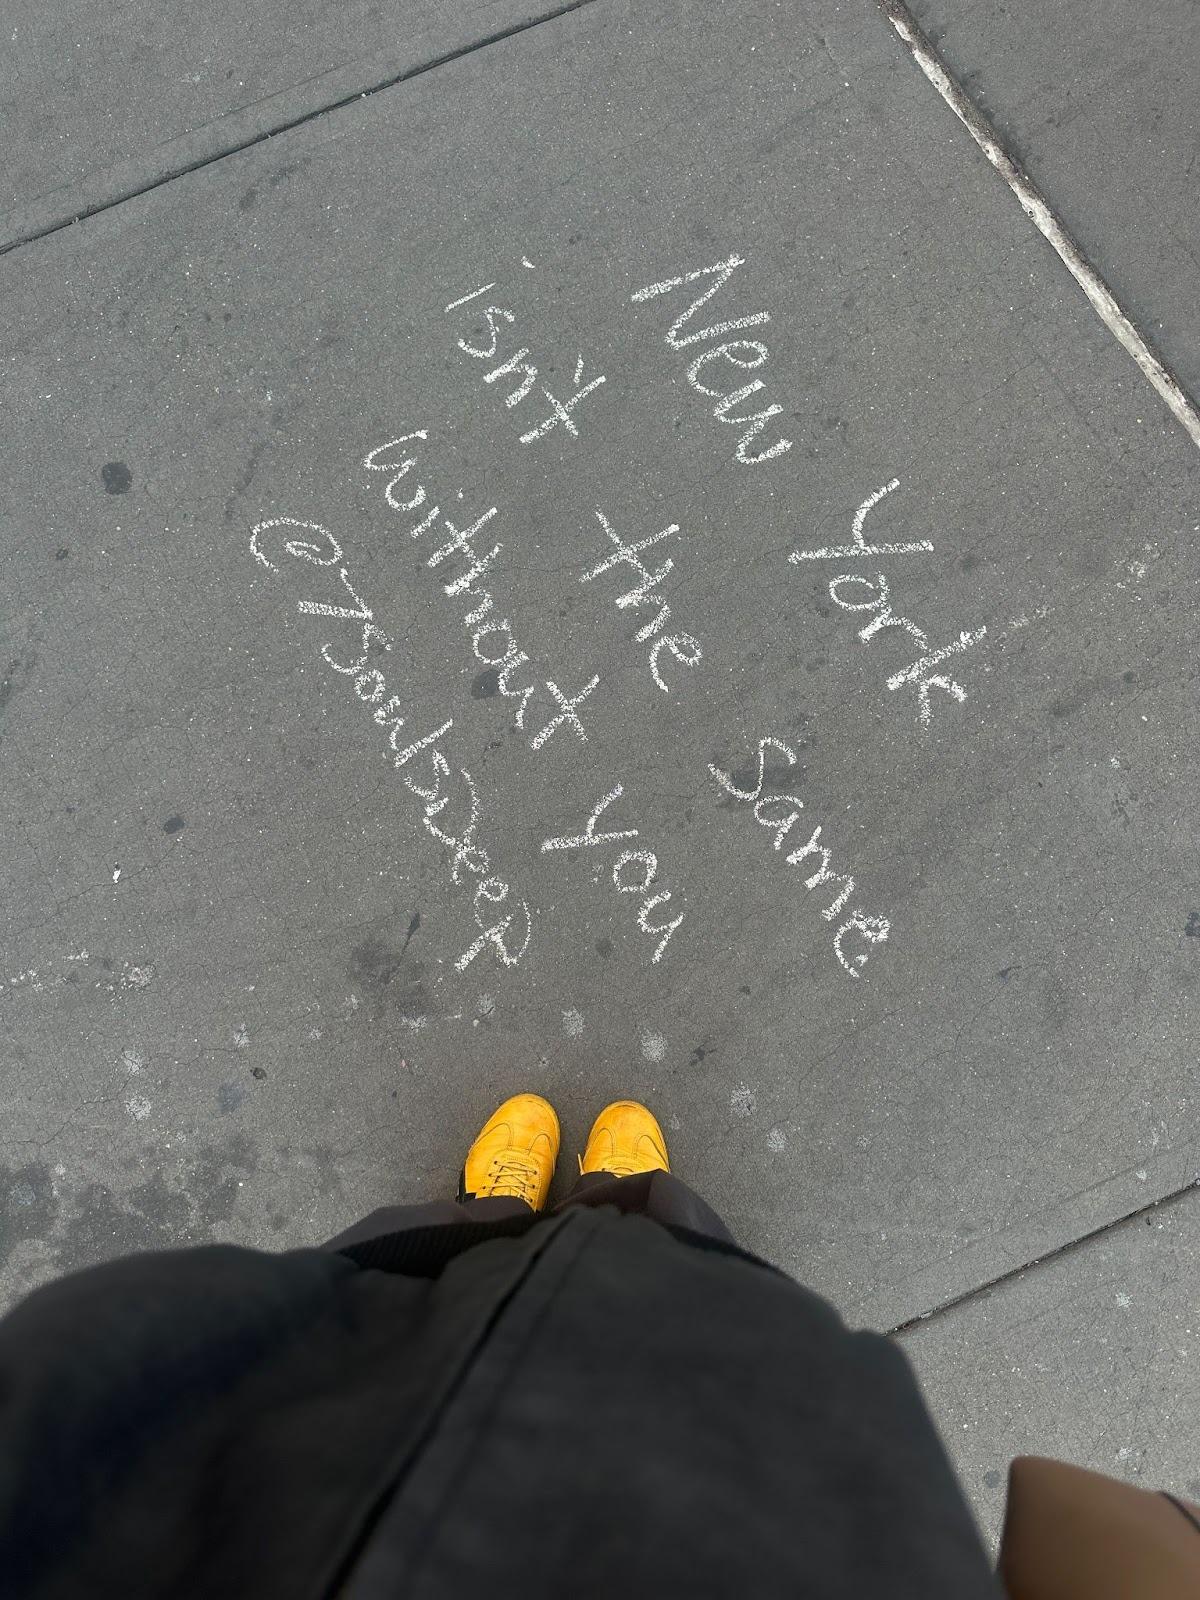 New York
isn't the same
without you
@7soulsdeep